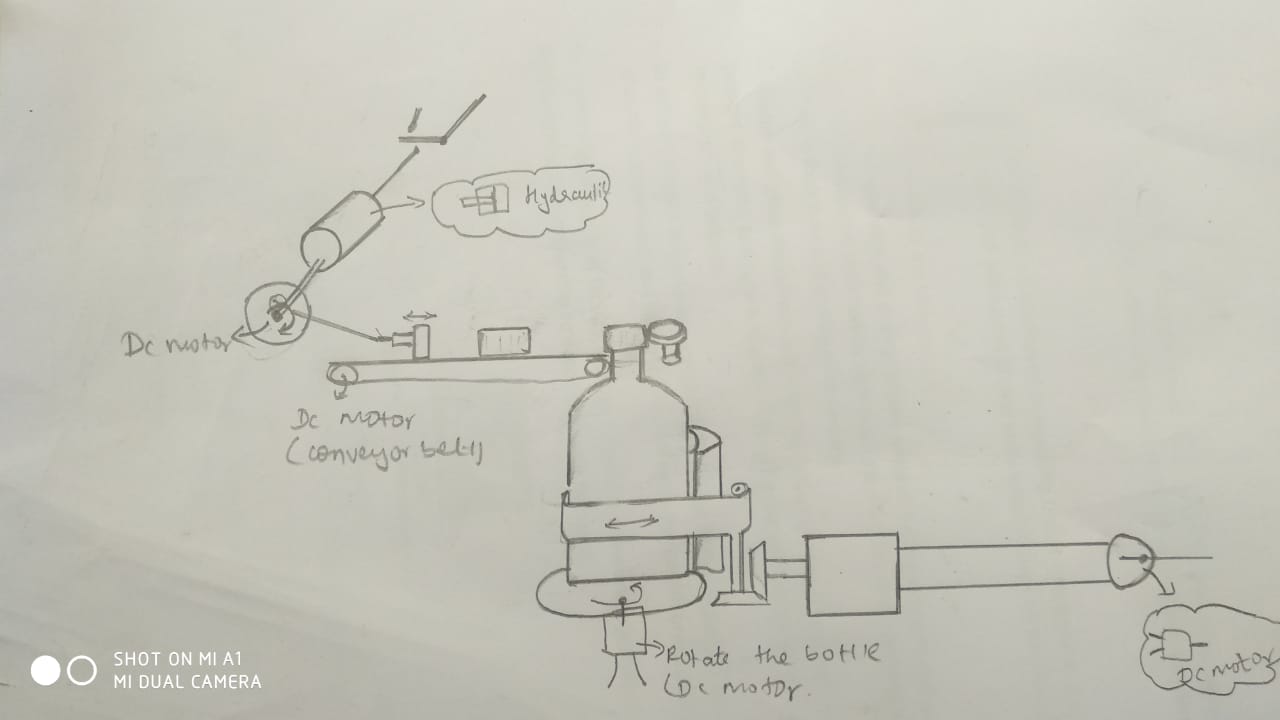 Hydraulic
Dc motor
Dc motor
(conveyor belt)
Rotate the bottle
(Dc motor.
DC motor
SHOT ON MI A1
MI DUAL CAMERA